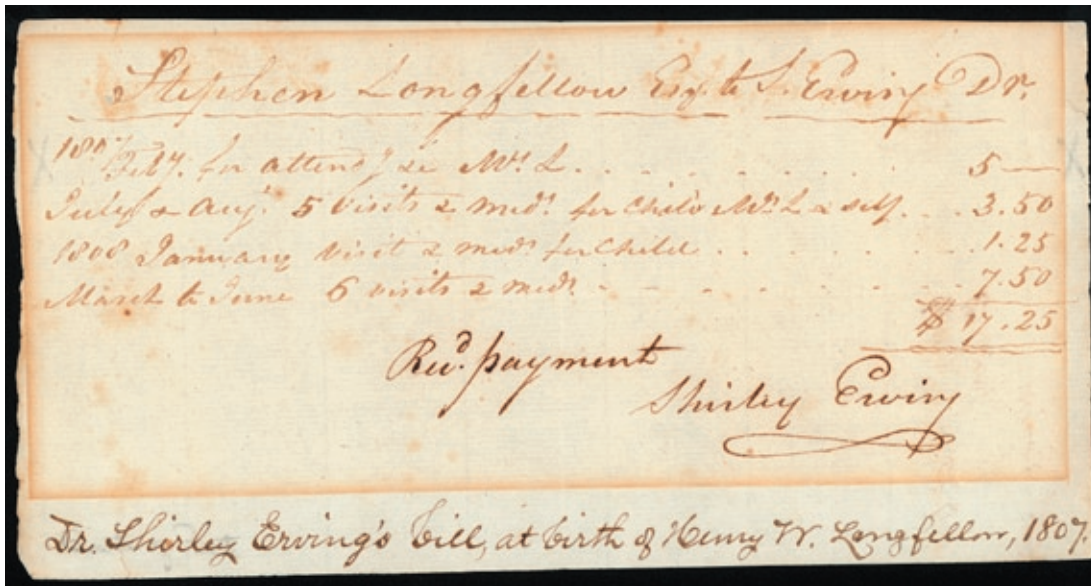 Stephen Longfellow Esq. to S. Erving Dr.
1807 Feby. for attendg &c Mrs. L. . . . . . . . . . 5 —
July & Aug. 5 visits & meds. for child Mrs. L & self . . . 3.50
1808 January visit & meds for child . . . . . . . 1.25
March to June 6 visits & meds. - - - - - - - 7.50
$ 17.25
Recd. payment
Shirley Erving
Dr. Shirley Erving's bill, at birth of Henry W. Longfellow, 1807.